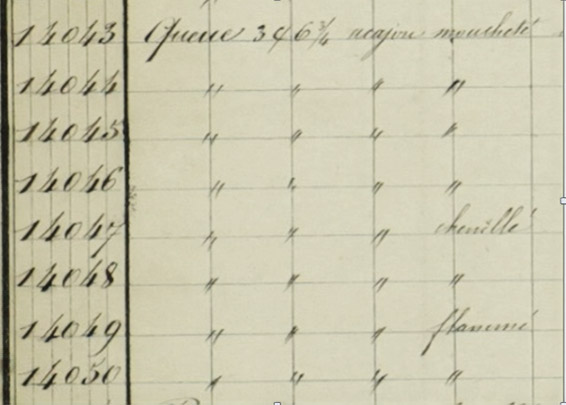 14043 Queue 3 et 6 3/4 acajou moucheté
14044 " " " "
14045 " " " "
14046 " " " "
14047 " " " chenillé
14048 " " " "
14049 " " " flammé
14050 " " " "